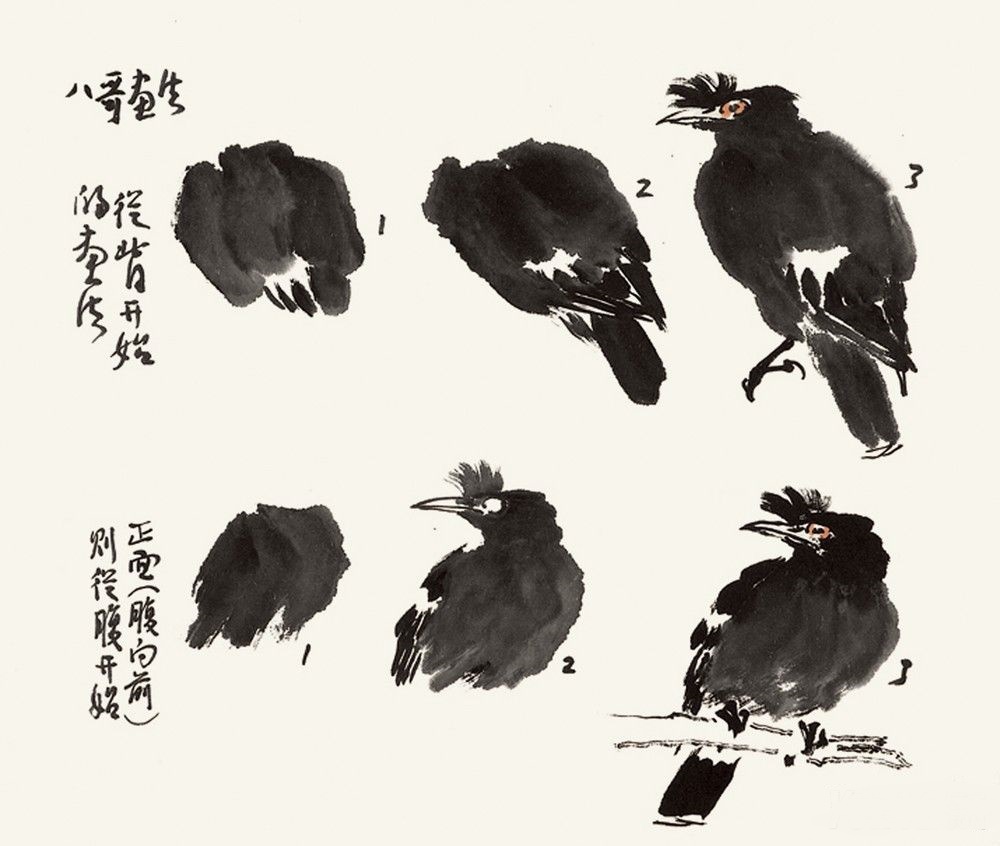 八哥画法
從背开始
的画法
1
2
3
正面（腹向前）
则從腹开始
1
2
3